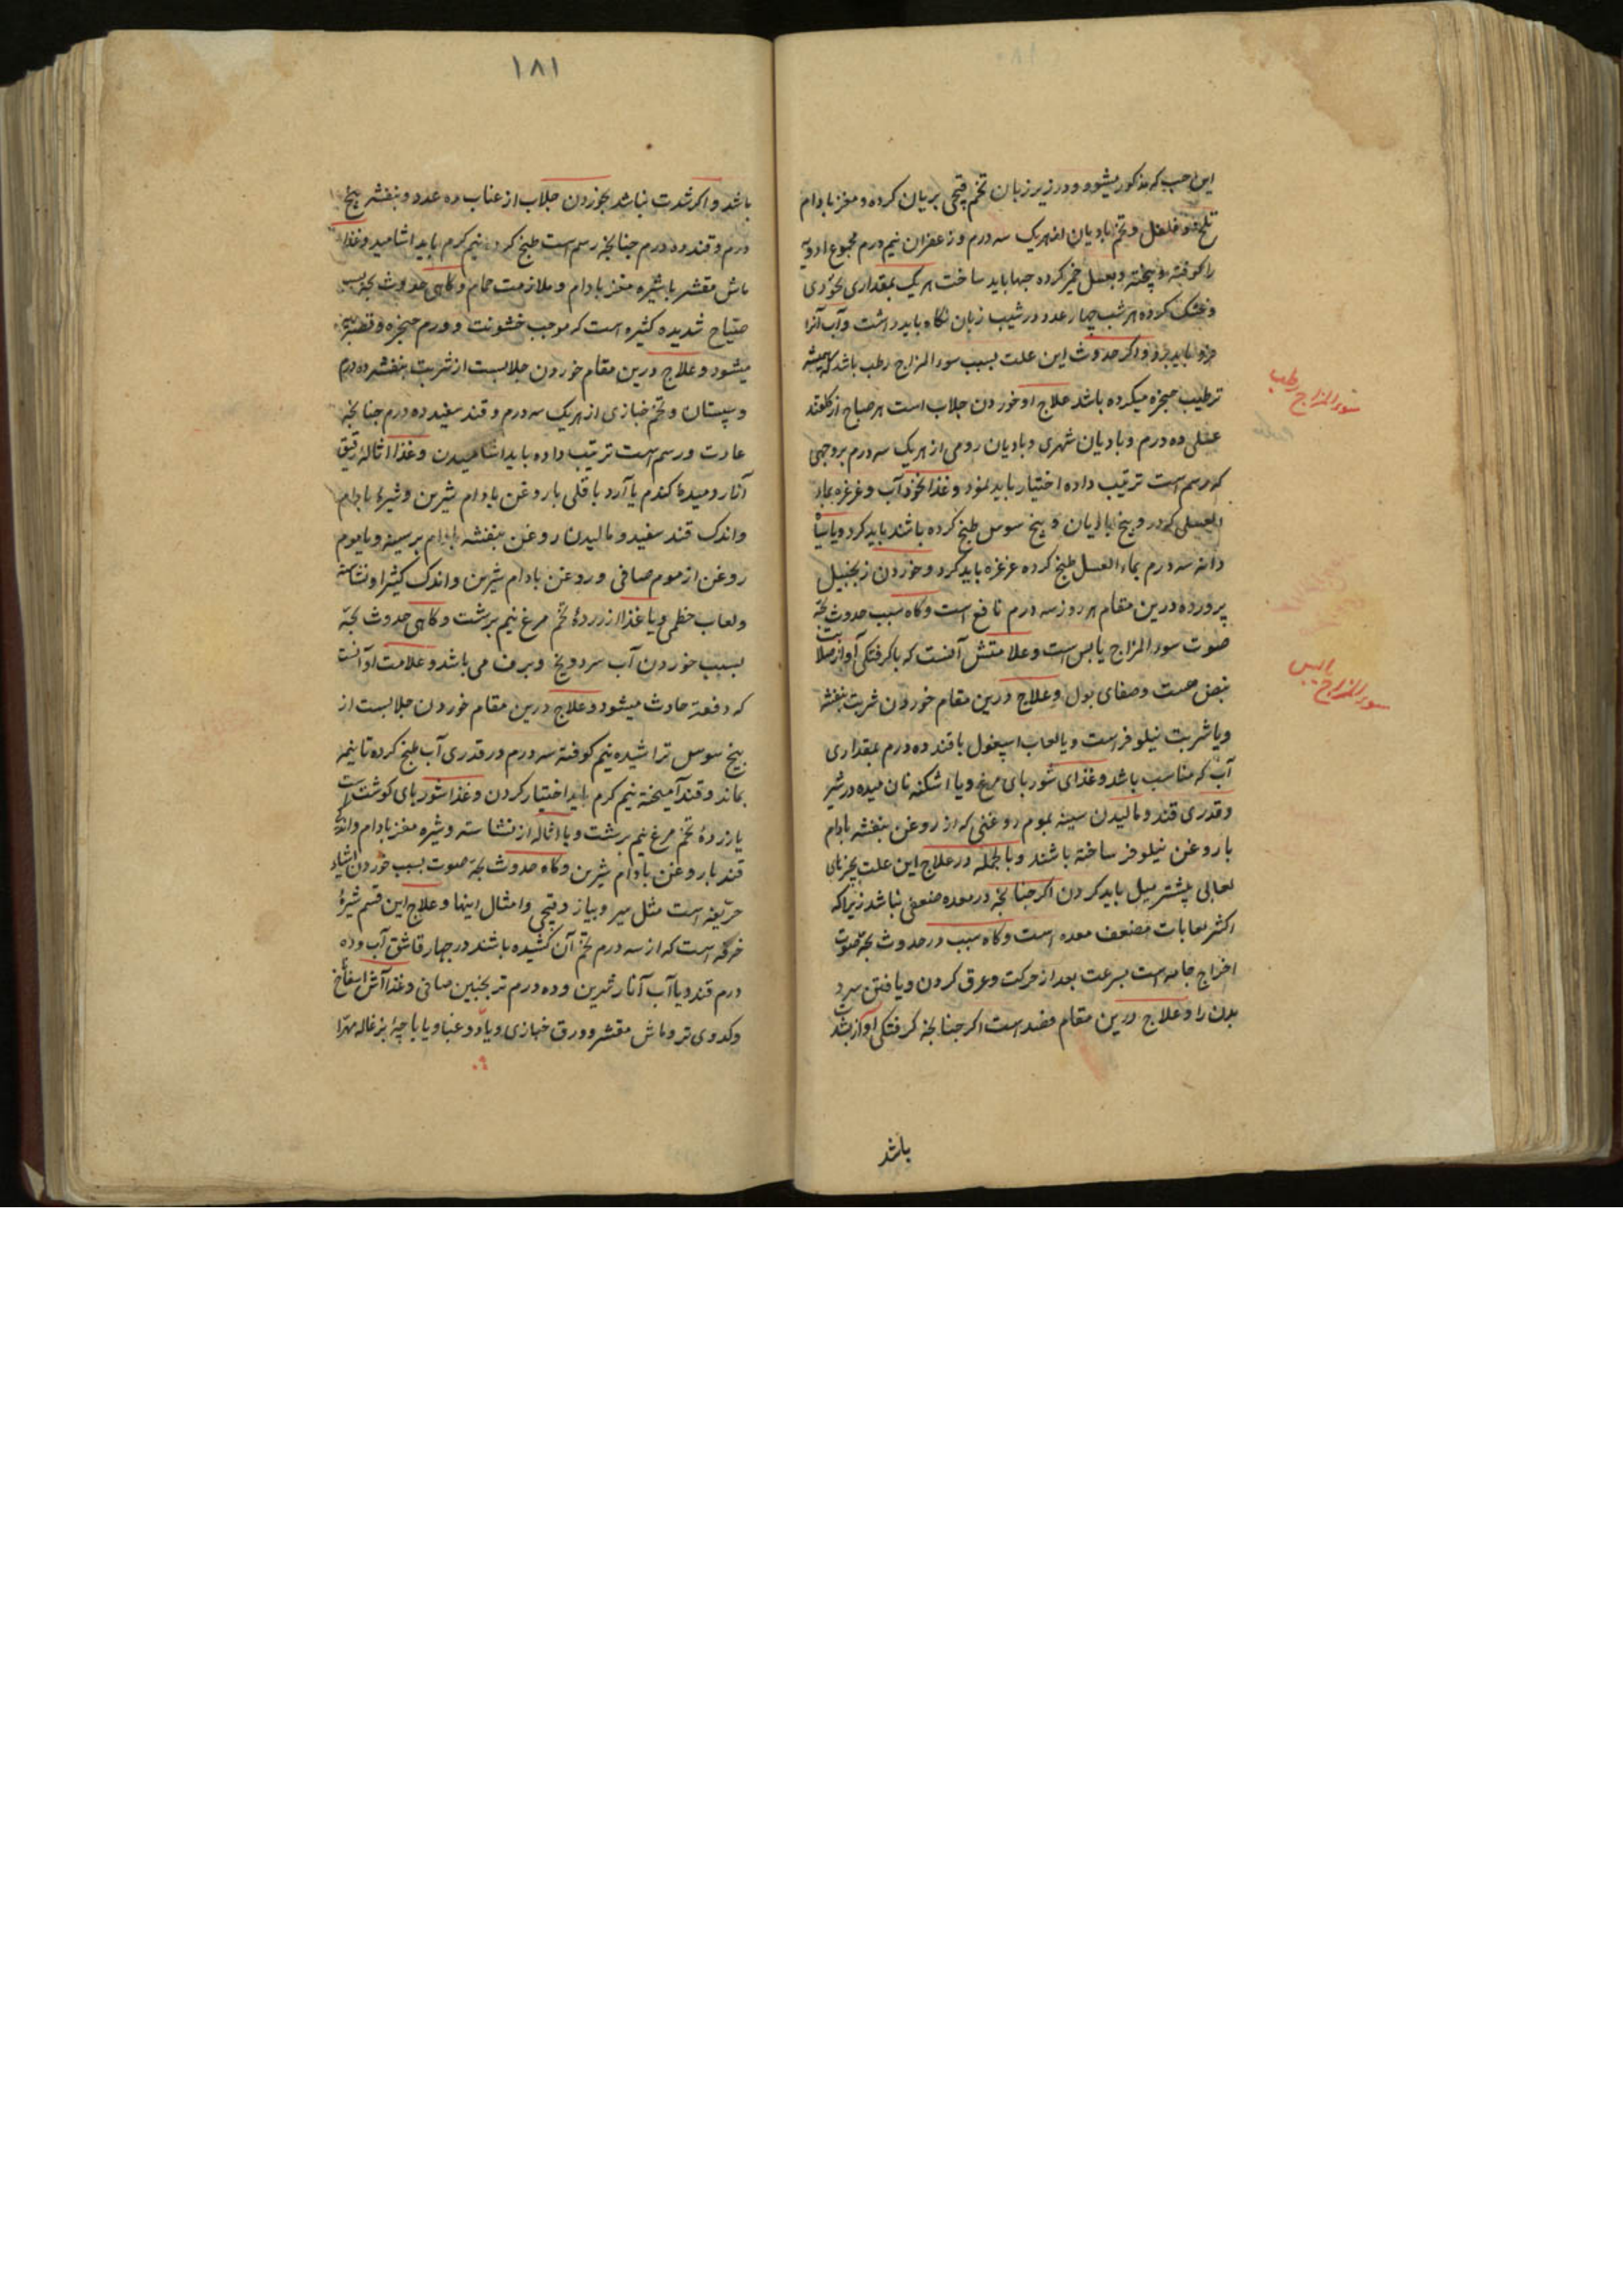 این حب که مذکور میشود و در زیر زبان تخم قتچی بریان کرده و مغز بادام
تلخ و فلفل و تخم بادیان از هریک سه درم و زعفران نیم درم مجموع ادویه
را کوفته و پیخته و بعسل خمیر کرده حبها باید ساخت هریک بمقداری نخودی
و خشک کرده هر شب چهار عدد در شیب زبان نکاه باید داشت و آب آنرا
فرو باید برد و اکر حدوث این علت بسبب سوء المزاج رطب باشد که همیشه
ترطیب حنجره میکرده باشد علاج او خوردن جلاب است هر صباح از کلقند
عسلی ده درم و بادیان شهری و بادیان رومی از هریک سه درم بروجهی
که رسم است ترتیب داده اختیار باید نمود و غذا نخود آب و غرغره بماء
العسلی که در و بیخ بادیان و بیخ سوس طبخ کرده باشند باید کرد و یا سیاه
دانه سه درم بماء العسل طبخ کرده غرغره باید کرد و خوردن زنجبیل
پرورده درین مقام هر روز سه درم نافع است و کاه سبب حدوث بحّة
صوت سوء المزاج یابس است و علامتش آنست که با کرفتکی آواز صلابت
نبض هست و صفای بول و علاج درین مقام خوردن شربت بنفشه
و یا شربت نیلوفر است و یا لعاب اسپغول با قند ده درم بمقداری
آب که مناسب باشد و غذای شوربای مرغ و یا اشکنه نان میده در شیر
و قدری قند و مالیدن سینه بموم روغنی که از روغن بنفشه بادام
یا روغن نیلوفر ساخته باشند و بالجمله در علاج این علت بچیزهای
لعابی پیشتر میل باید کردن اکر چنانچه در معده ضعفی نباشد زیرا که
اکثر لعابات مضعف معده است و کاه سبب در حدوث بحّة صوت
اخراج جامه است بسرعت بعد از حرکت و عرق کردن و یافتن سرد
بدن را و علاج درین مقام فصد است اکر چنانچه کرفتکی آواز بشدت
باشد
سوء المزاج رطب
سوء المزاج یابس
۱۸۱
باشد و اکر شدت نباشد بخوردن جلاب از عناب ده عدد و بنفشه پنج
درم و قند ده درم چنانچه رسم است طبخ کرده نیم کرم باید اشامید و غذا
ماش مقشر با شیره مغز بادام و ملازمت حمام و کاهی حدوث بحّة بسبب
صیاح شدیده کثیره است که موجب خشونت و ورم حنجره و قصبه
میشود و علاج درین مقام خوردن جلابست از شربت بنفشه ده درم
و سپستان و تخم خبازی از هریک سه درم و قند سفید ده درم چنانچه
عادت و رسم است ترتیب داده باید اشامیدن و غذا اماله رقیق
آنار و میدهٔ کندم یا آرد باقلی با روغن بادام شیرین و شیرهٔ بادام
و اندک قند سفید و مالیدن روغن بنفشه بادام بر سینه و یا موم
روغن از موم صافی و روغن بادام شیرین و اندک کثیرا و نشاسته
و لعاب خطمی و یا غذا از زردهٔ تخم مرغ نیم برشت و کاهی حدوث بحّة
بسبب خوردن آب سرد و یخ و برف می باشد و علامت او آنست
که دفعة حادث میشود و علاج درین مقام خوردن جلابست از
بیخ سوس تراشیده نیم کوفته سه درم در قدری آب طبخ کرده تا نیمه
بماند و قند آمیخته نیم کرم باید اختیار کردن و غذا شوربای کوشت است
یا زردهٔ تخم مرغ نیم برشت و یا اماله از نشاسته و شیره مغز بادام و اندک
قند با روغن بادام شیرین و کاه حدوث بحّة صوت بسبب خوردن اشیاء
حریفه است مثل سیر و پیاز و قتچی و امثال اینها و علاج این قسم شیرهٔ
خرفه است که از سه درم تخم آن کشیده باشند در چهار قاشق آب و ده
درم قند و یا آب آنار شیرین و ده درم ترنجبین صافی و غذا آش اسفاناخ
و کدوی تر و ماش مقشر و ورق خبازی و یا دوغبا و یا پاچهٔ بزغاله مهرّا